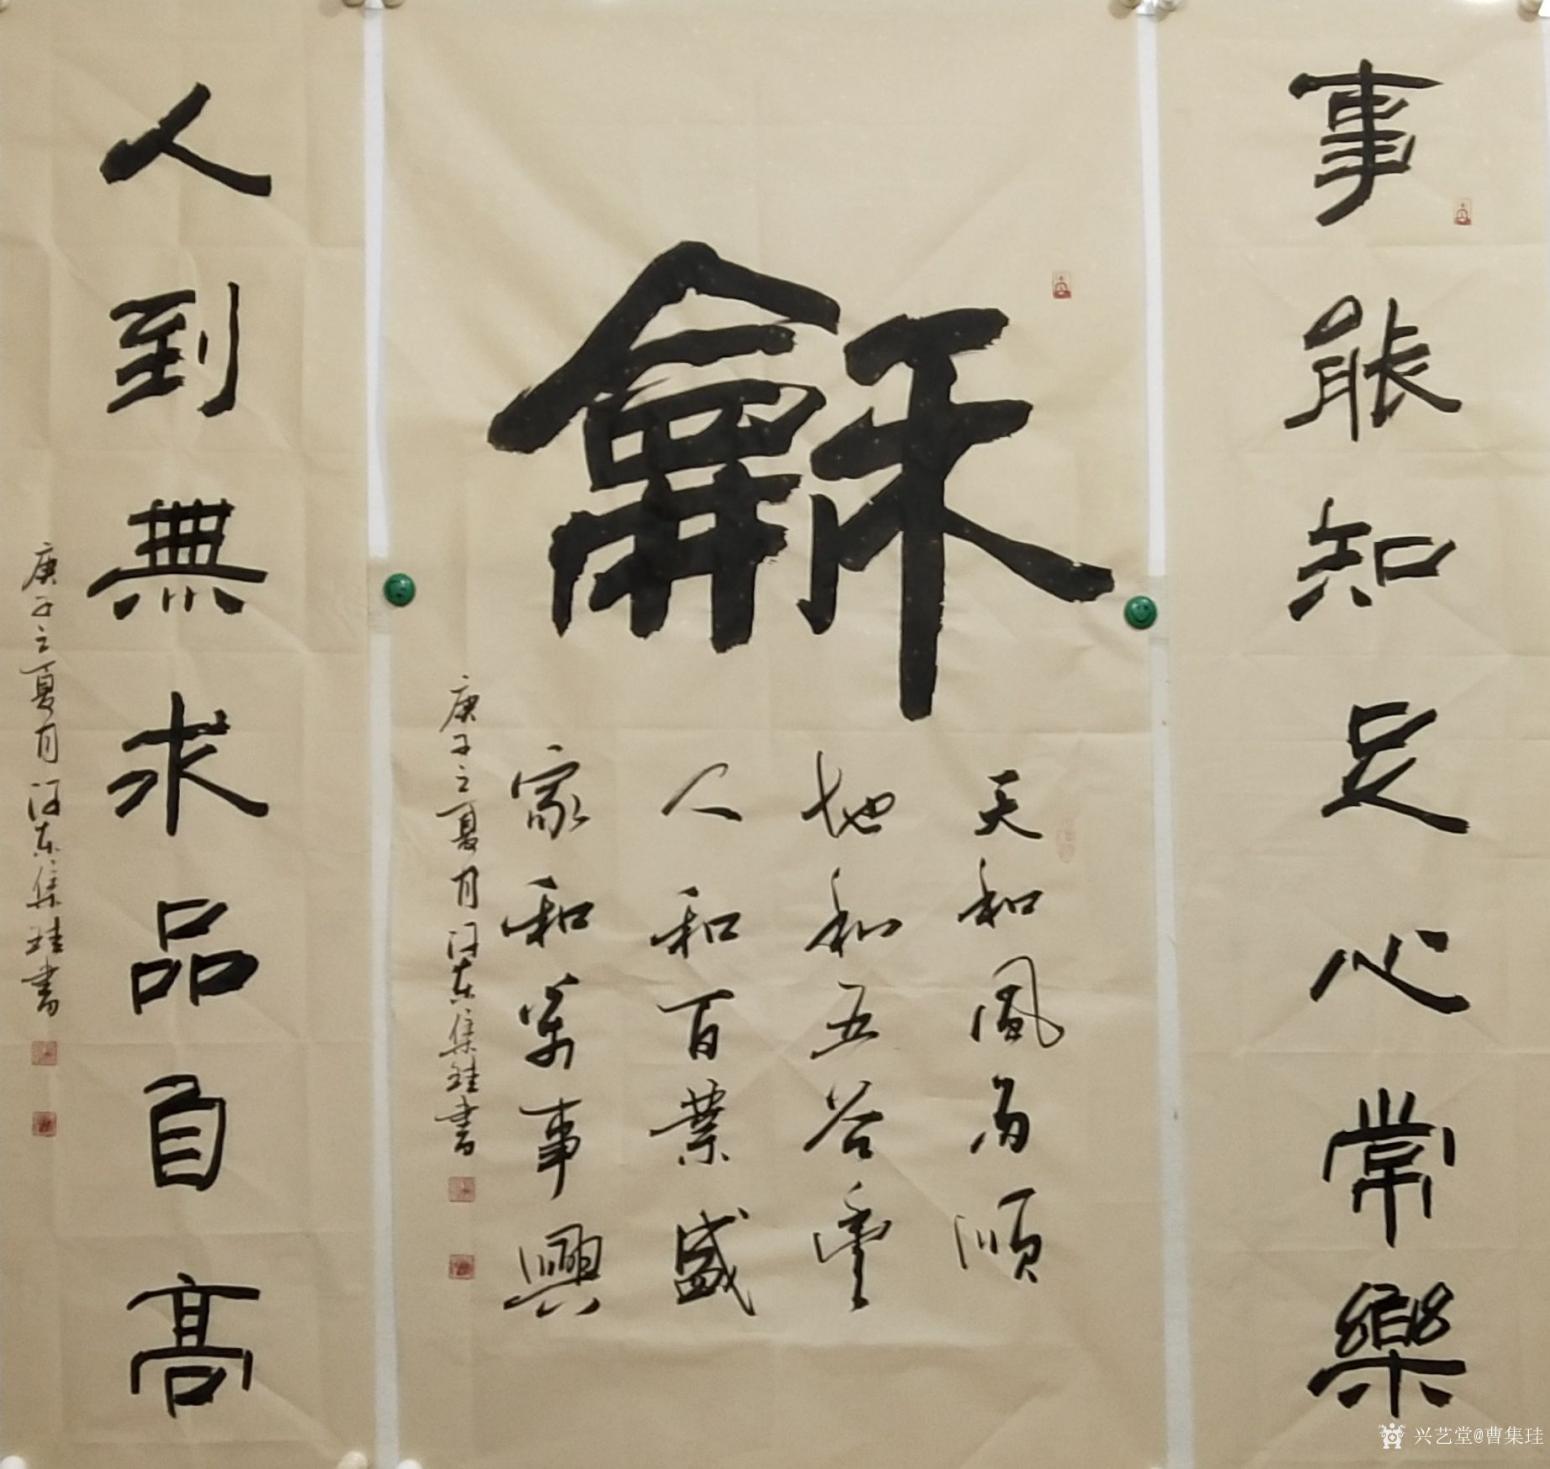 事能知足心常樂
龢
天和風雨順
地和五谷豐
人和百業盛
家和萬事興
庚子立夏月河东集珪書
人到無求品自高
庚子立夏月河东集珪書
兴艺堂@曹集珪